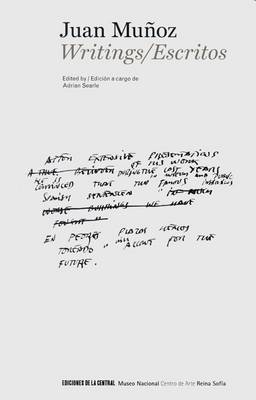 Juan Muñoz
Writings/Escritos
Edited by / Edición a cargo de
Adrian Searle
AFTER EXTENSIVE PRESENTATIONS
OF HIS WORK
A TRUE DURING THE LAST YEARS
HE IS
CONVINCED THAT THE FAMOUS
SPANISH SENTENCE
WORSE BUILDINGS WE HAVE
FOUGHT "
EN PEORES PLAZAS HEMOS
TOREADO " ACCOUNT FOR THE
FUTURE.
EDICIONES DE LA CENTRAL Museo Nacional Centro de Arte Reina Sofía